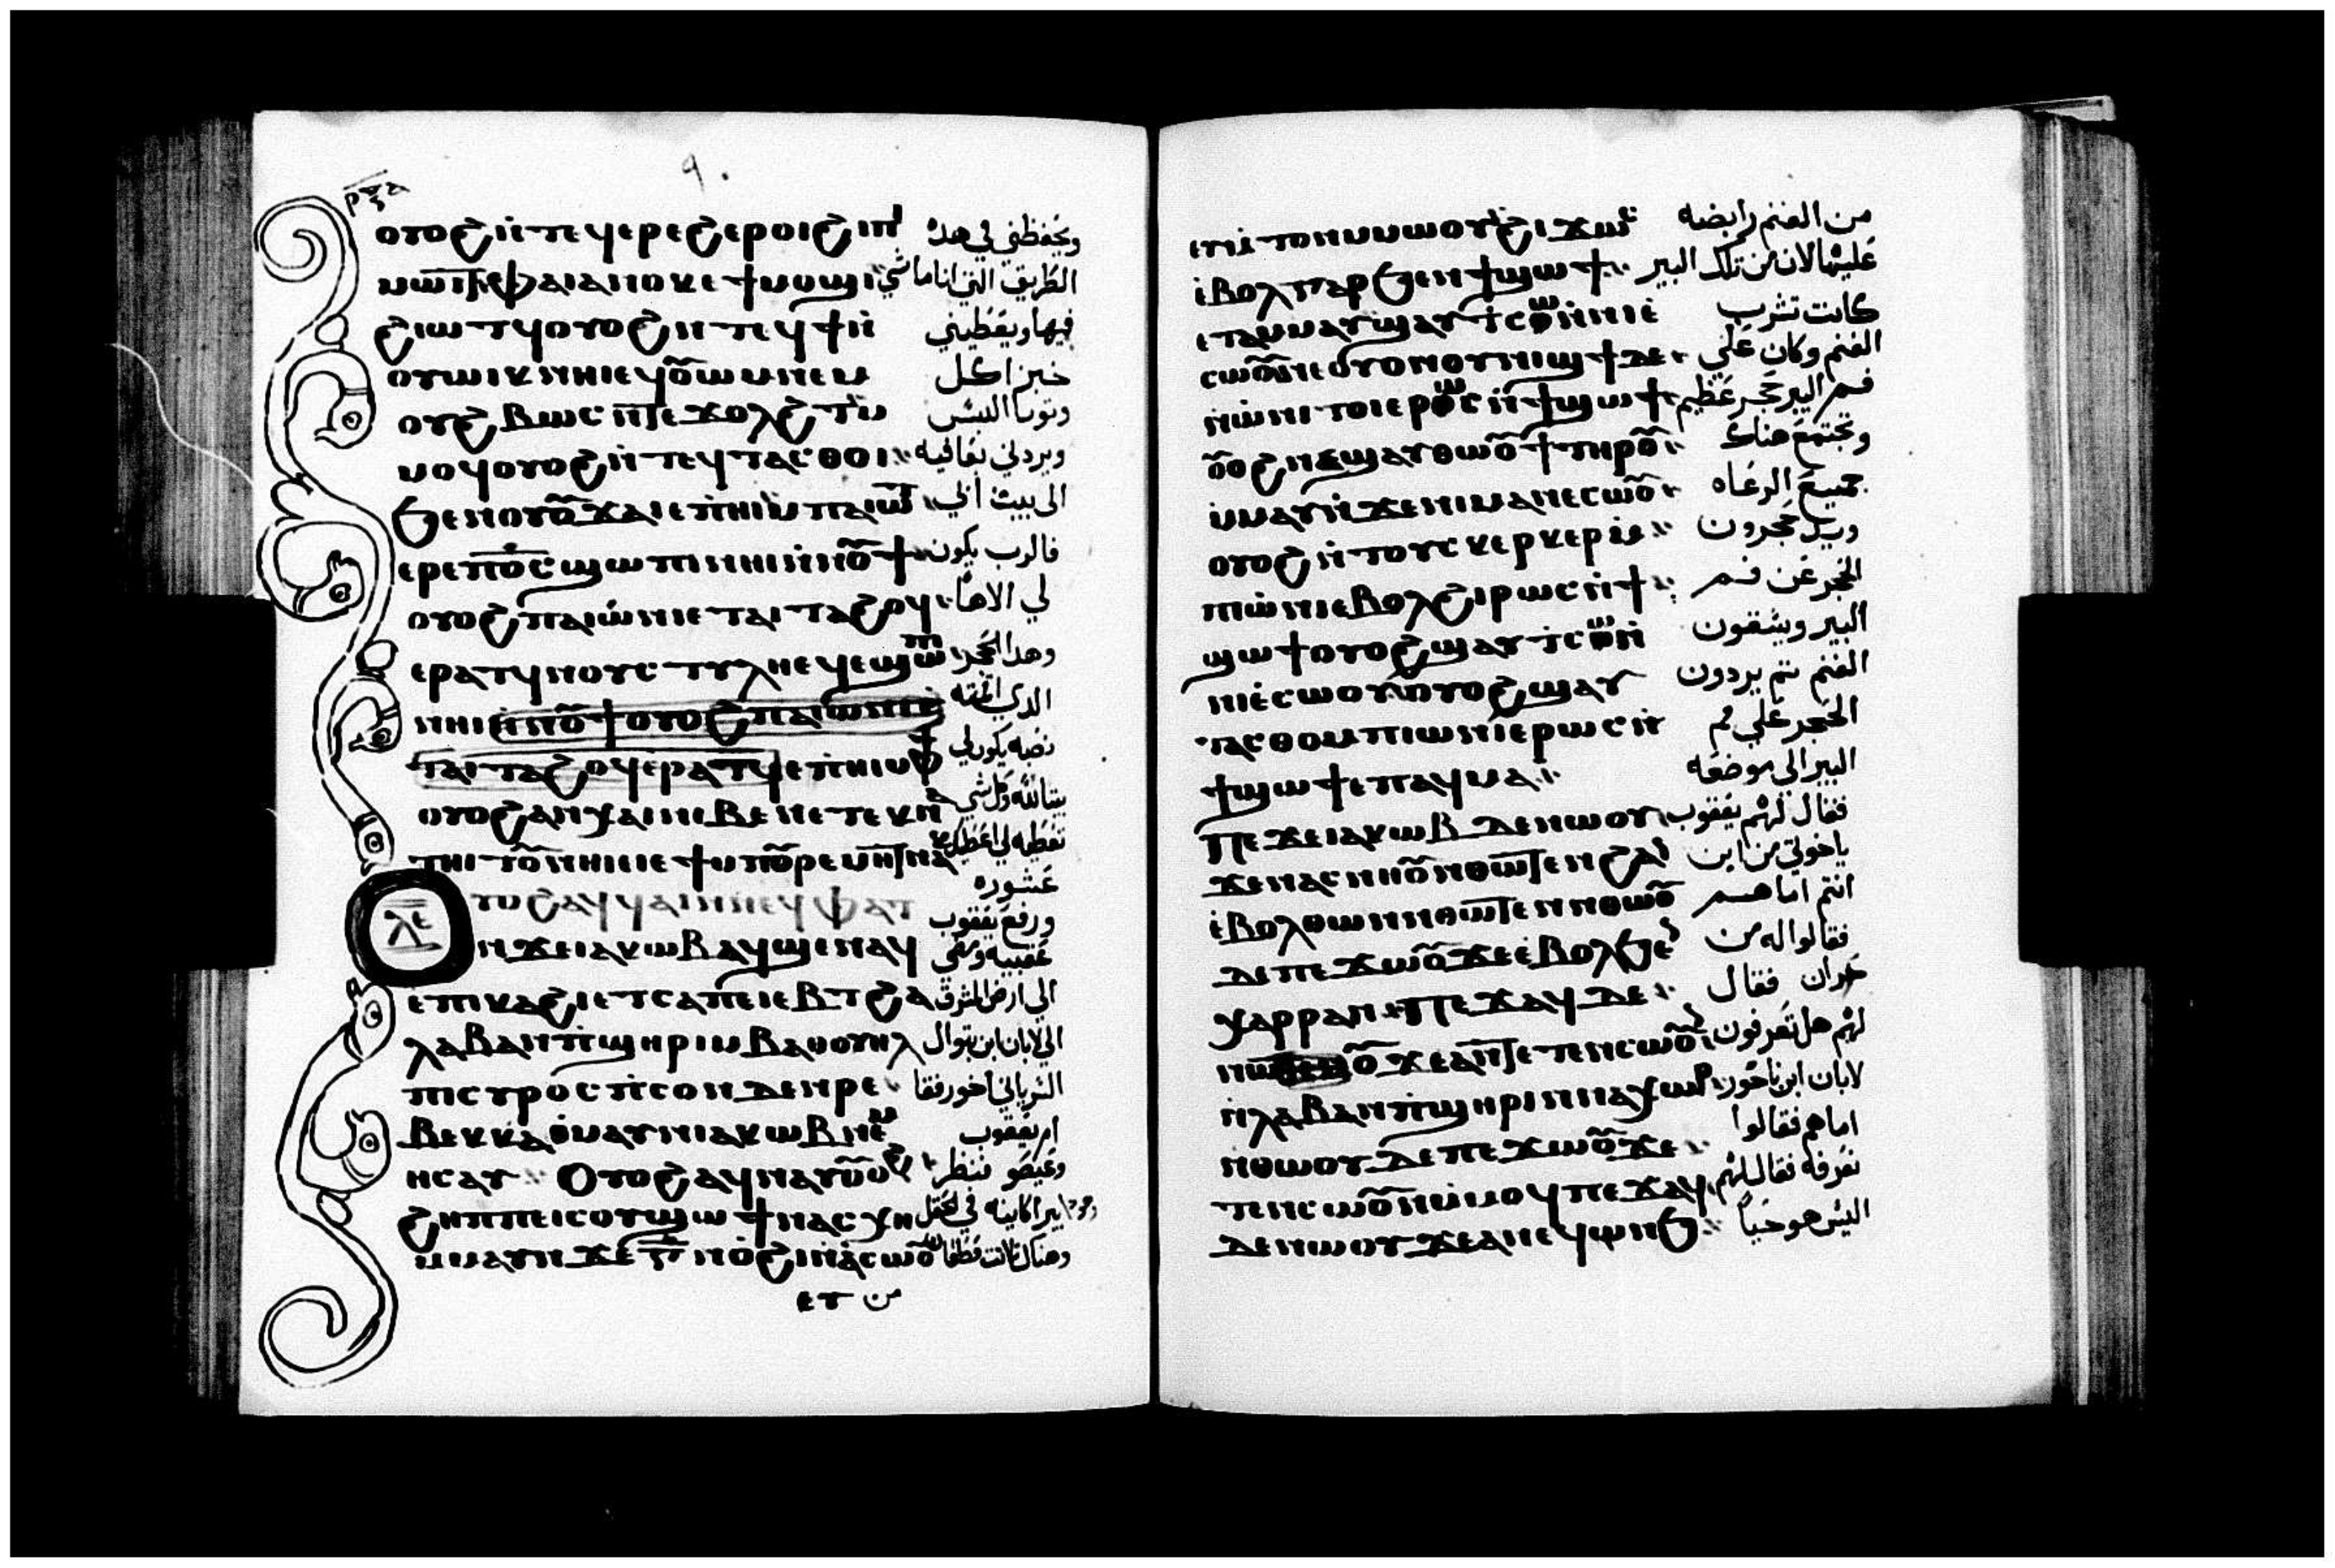 ٩٠
ⲟⲩⲟϩ ⲛ̀ⲧⲉϥⲉⲣⲉϩ ⲉⲣⲟⲓ ϩⲓⲡ ويحفظني في هذه
ⲫⲁⲓ ⲁⲛⲟⲕ ⲉϯⲙⲟϣⲓ الطريق التي انا ماشي
ϩⲓⲱⲧϥ ⲟⲩⲟϩ ⲛⲧⲉϥϯ ⲛ̀ فيها ويعطيني
ⲟⲩⲱⲓⲕ ⲛⲏⲓ ⲛⲉⲙ خبز اكل
ⲟⲩϩⲃⲱⲥ ⲛ̀ⲧⲉ ϫⲟⲗϩⲧ وتوبا البس
ⲙⲟϥ ⲟⲩⲟϩ ⲛ̀ⲧⲉϥⲧⲁⲥⲑⲟⲓ ويردني بعافيه
ϧⲉⲛ ⲟⲩⲟⲩϫⲁⲓ ⲉⲡⲏⲓ ⲙ̀ⲡⲁⲓⲱⲧ الى بيت ابي
ⲉⲣⲉ ⲡ̅ⲟ̅ⲥ̅ ϣⲱⲡⲓ ⲛⲏⲓ ⲛ̀ⲛⲟⲩϯ فالرب يكون
ⲟⲩⲟϩ ⲡⲁⲓⲱ̀ⲛⲓ ⲉⲧⲁⲓⲧⲁϩⲟϥ لي الاها
ⲉⲣⲁⲧϥ ⲛⲟⲩⲥⲧⲩⲗⲏ ⲉϥⲉϣⲱⲡ وهدا الحجر
ⲛⲏⲓ ⲛ̀ⲛⲟⲩϯ ⲟⲩⲟϩ ⲡⲁⲓⲱⲛⲓ ⲉ الدي اقمته
ⲧⲁⲓⲧⲁϩⲟϥ ⲉⲣⲁⲧϥ ⲉⲡⲏⲓ ⲙⲫϯ نصبه يكون لي
ⲟⲩⲟϩ ⲛⲓⲃⲉⲛ ⲉⲧⲉⲕⲛⲁ بيتا لله وكل شي
ⲧⲏⲓⲧⲟⲩ ⲛⲏⲓ تعطيه لي
عشوره
ⲗ̅ⲉ̅ ورفع يعقوب
ⲛϫⲉ ⲓⲁⲕⲱⲃ ⲁϥϣⲉⲛⲁϥ
ⲉⲡⲕⲁϩⲓ ⲉⲧⲥⲁⲡⲉⲓⲉⲃⲧ ϩⲁ الي ارض المشرق
ⲗⲁⲃⲁⲛ ⲡ̀ϣⲏⲣⲓ ⲙⲃⲁⲑⲟⲩⲏⲗ الي لابان ابن بتوال
ⲡⲓⲥⲩⲣⲟⲥ ⲡ̀ⲥⲟⲛ ⲇⲉ ⲛⲣⲉ السرياني اخو رفقا
ⲃⲉⲕⲕⲁ ⲑ̀ⲙⲁⲩ ⲛⲓⲁⲕⲱⲃ ⲛⲉⲙ ام يعقوب
ⲏⲥⲁⲩ ⲟⲩⲟϩ ⲁϥⲛⲁⲩ وعيصو نظر
ϩⲏⲡⲡⲉ ⲓⲥ ⲟⲩϣⲱϯ ⲛⲁⲥⲭⲏ بيرا كاينه في الحقل
ⲙⲙⲁⲩ ⲛϫⲉ ⲅ̅ ⲛ̀ⲟϩⲓ ⲛ̀ⲉⲥⲱⲟⲩ وهناك ثلاث قطعان
ⲉⲩ من
ⲉⲩⲙ̀ⲧⲟⲛ ⲙⲙⲱⲟⲩ ϩⲓϫⲱⲥ من الغنم رابضه
ⲉ̀ⲃⲟⲗ ⲅⲁⲣ ϧⲉⲛ ϯϣⲱϯ عليها لان من تلك البير
ⲉⲧⲁⲙⲙⲁⲩ ϣⲁⲩⲧⲥⲱ ⲛ̀ⲛⲓⲉ̀ كانت تشرب
ⲥⲱⲟⲩ ⲛⲉ ⲟⲩⲟⲛ ⲟⲩⲛⲓϣϯ ⲇⲉ الغنم وكان علي
ⲛ̀ⲱ̀ⲛⲓ ⲧⲟⲓ ⲉⲣⲱⲥ ⲛ̀ϯϣⲱϯ فم البير حجر عظيم
ⲟⲩⲟϩ ⲛⲉϣⲁⲩⲑⲱⲟⲩϯ ⲧⲏⲣⲟⲩ وتجتمع هناك
ⲙ̀ⲙⲁⲩ ⲛ̀ϫⲉ ⲛⲓⲙⲁⲛⲉⲥⲱⲟⲩ جميع الرعاه
ⲟⲩⲟϩ ⲛ̀ⲧⲟⲩⲥⲕⲉⲣⲕⲉⲣ
ⲡⲓⲱ̀ⲛⲓ ⲉⲃⲟⲗ ϩⲓⲣⲱⲥ ⲛ̀ϯ الحجر عن فم
ϣⲱϯ ⲟⲩⲟϩ ϣⲁⲩⲧⲥⲱ ⲛ̀ البير ويسقون
ⲛⲓⲉ̀ⲥⲱⲟⲩ ⲟⲩⲟϩ ϣⲁⲩ الغنم ثم يردون
ⲧⲁⲥⲑⲟ ⲙⲡⲓⲱⲛⲓ ⲉⲣⲱⲥ ⲛ̀ الحجر علي فم
ϯϣⲱϯ ⲉⲡⲁϥⲙⲁ البير الي موضعه
ⲡⲉϫⲉ ⲓⲁⲕⲱⲃ ⲇⲉ ⲛⲱⲟⲩ فقال لهم يعقوب
ϫⲉ ⲛⲁⲥⲛⲏⲟⲩ ⲛⲑⲱⲧⲉⲛ ϩⲁⲛ ياخوتي من اين
ⲉ̀ⲃⲟⲗ ⲑⲱⲛ ⲛⲑⲱⲧⲉⲛ ⲛⲑⲱⲟⲩ انتم اما هم
ⲇⲉ ⲡⲉϫⲱⲟⲩ ϫⲉ ⲉ̀ⲃⲟⲗ ϧⲉⲛ فقالوا له من
ⲭⲁⲣⲣⲁⲛ ⲡⲉϫⲁϥ ⲇⲉ حران فقال
ϫⲉ ⲁⲛ ⲧⲉⲧⲉⲛⲥⲱⲟⲩⲛ لهم هل تعرفون
ⲛ̀ⲗⲁⲃⲁⲛ ⲡ̀ϣⲏⲣⲓ ⲛⲛⲁⲭⲱⲣ لابان ابن ناحور
ⲛⲑⲱⲟⲩ ⲇⲉ ⲡⲉϫⲱⲟⲩ ϫⲉ اما هم فقالوا
ⲧⲉⲛⲥⲱⲟⲩⲛ ⲙ̀ⲙⲟϥ ⲡⲉϫⲁϥ نعرفه فقال لهم
ⲇⲉ ⲛⲱⲟⲩ ϫⲉ ⲁⲛ ⲉϥⲱⲛϧ اليس هو حيا